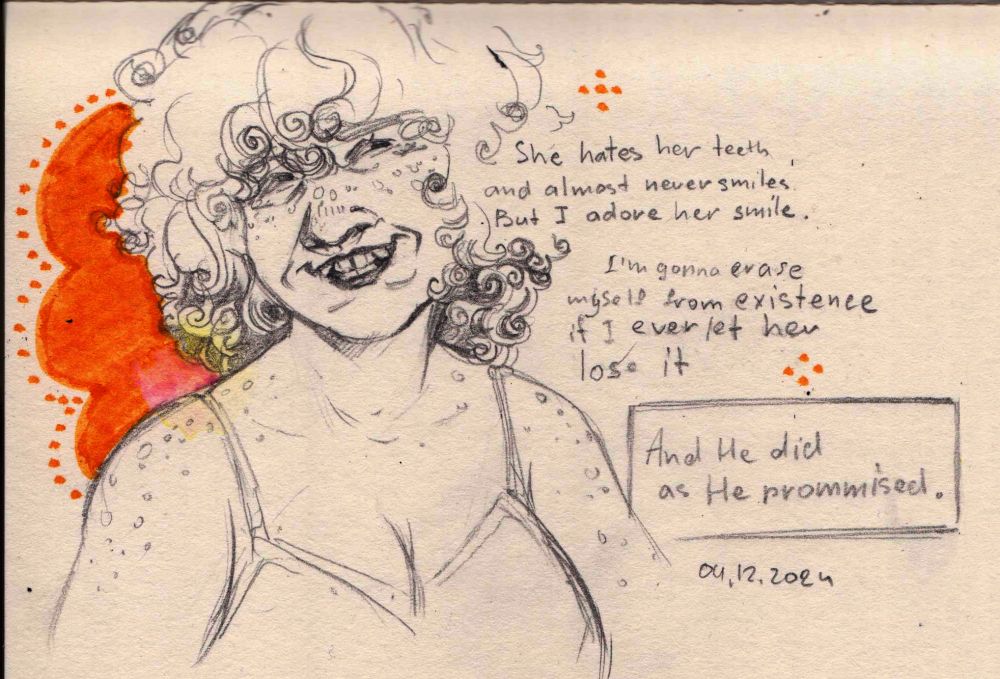 She hates her teeth,
and almost never smiles.
But I adore her smile.
I'm gonna erase
myself from existence
if I ever let her
lose it
And He did
as He prommised.
04.12.2024